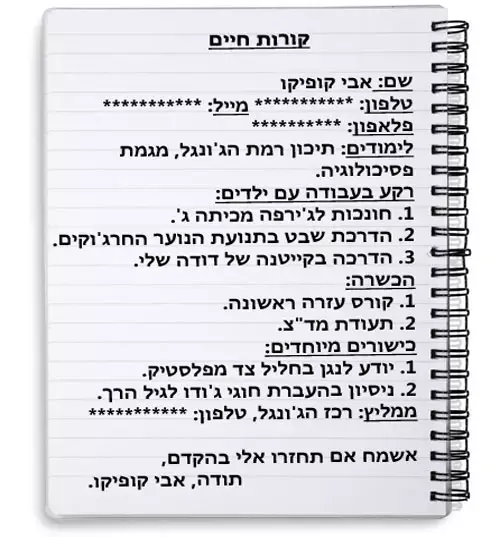 קורות חיים
שם: אבי קופיקו
טלפון: *********** מייל: ***********
פלאפון: **********
לימודים: תיכון רמת הג'ונגל, מגמת
פסיכולוגיה.
רקע בעבודה עם ילדים:
1. חונכות לג'ירפה מכיתה ג'.
2. הדרכת שבט בתנועת הנוער החרג'וקים.
3. הדרכה בקייטנה של דודה שלי.
הכשרה:
1. קורס עזרה ראשונה.
2. תעודת מד"צ.
כישורים מיוחדים:
1. יודע לנגן בחליל צד מפלסטיק.
2. ניסיון בהעברת חוגי ג'ודו לגיל הרך.
ממליץ: רכז הג'ונגל, טלפון: ***********
אשמח אם תחזרו אלי בהקדם,
תודה, אבי קופיקו.